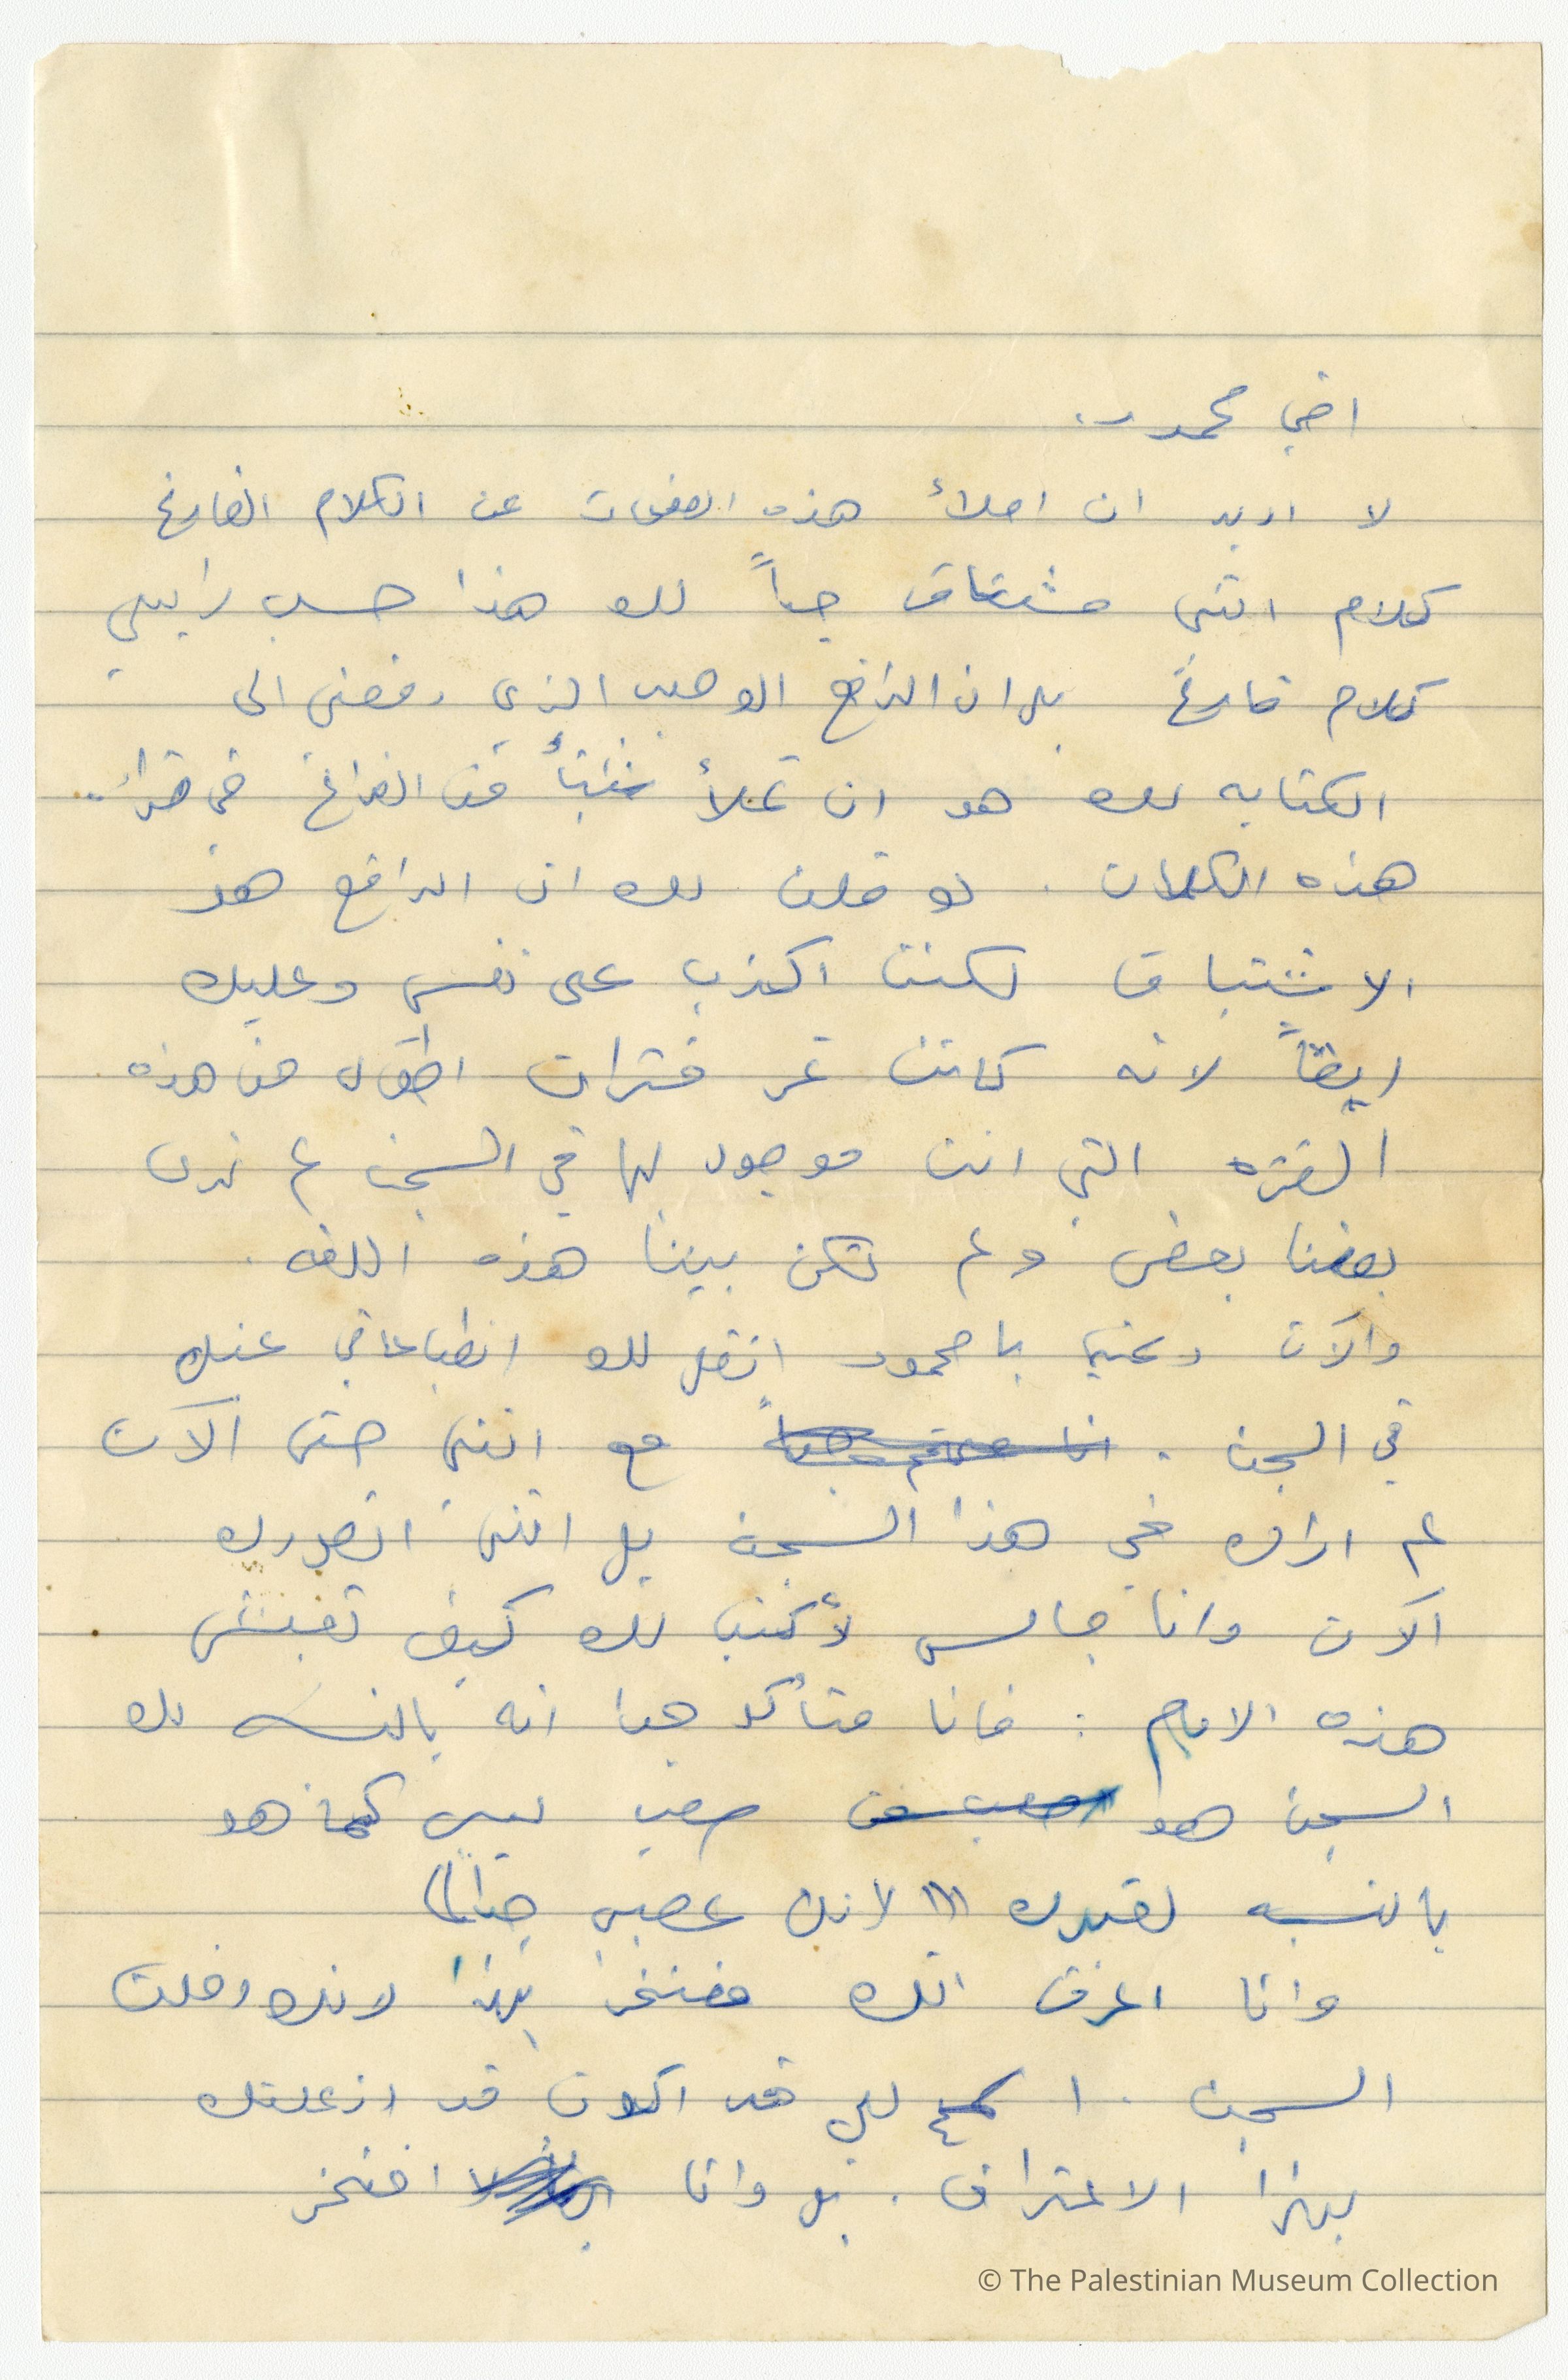 اخي محمود..
لا اريد ان املأ هذه الصفحات عن الكلام الفارغ
كلام انني مشتاق جداً لك هذا حسب رأيي
كلام فارغ بل ان الدافع الوحيد الذي دفعني الى
الكتابه لك هو ان تملأ شيئاً من الفراغ في قراءة
هذه الكلمات . لو قلت لك ان الدافع هو
الاشتياق لكنت اكذب على نفسي وعليك
ايضاً لانه كانت تمر فترات اطول من هذه
الفتره التي انت موجود بها في السجن لم نرى
بعضنا بعض ولم تكن بيننا هذه اللغه .
والآن دعني يا محمود انقل لك انطباعاتي عنك
في السجن . مع انني حتى الآن
لم اراك في هذا السجن بل انني اتصورك
الآن وانا جالس لأكتب لك كيف تعيش
هذه الايام : فانا متأكد جدا انه بالنسبه لك
السجن هو صعب ليس كما هو
بالنسبه لغيرك !!! لانك عصبي
وانا اعرف انك مفتخر بهذا لانك دخلت
السجن . لي قد اكون قد ازعلتك
بهذا الاعتراف . بل وانا افتخر
© The Palestinian Museum Collection